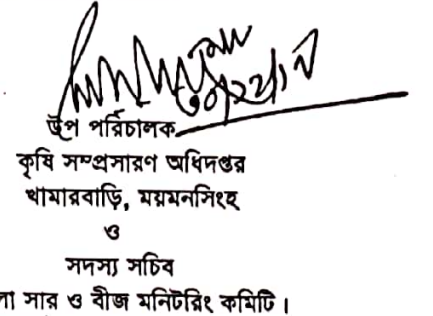 উপ পরিচালক
কৃষি সম্প্রসারণ অধিদপ্তর
খামারবাড়ি, ময়মনসিংহ
ও
সদস্য সচিব
সার ও বীজ মনিটরিং কমিটি।